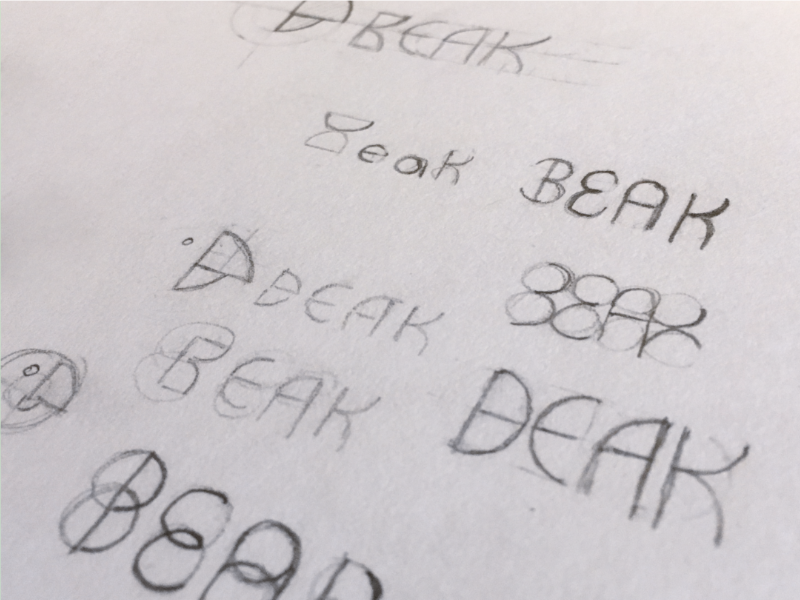 BEAK
Beak BEAK
BEAK BEAK
BEAK BEAK
BEA